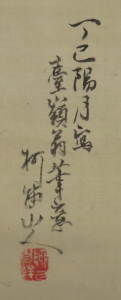 丁巳陽月寫
臺嶺翁筆意
山人